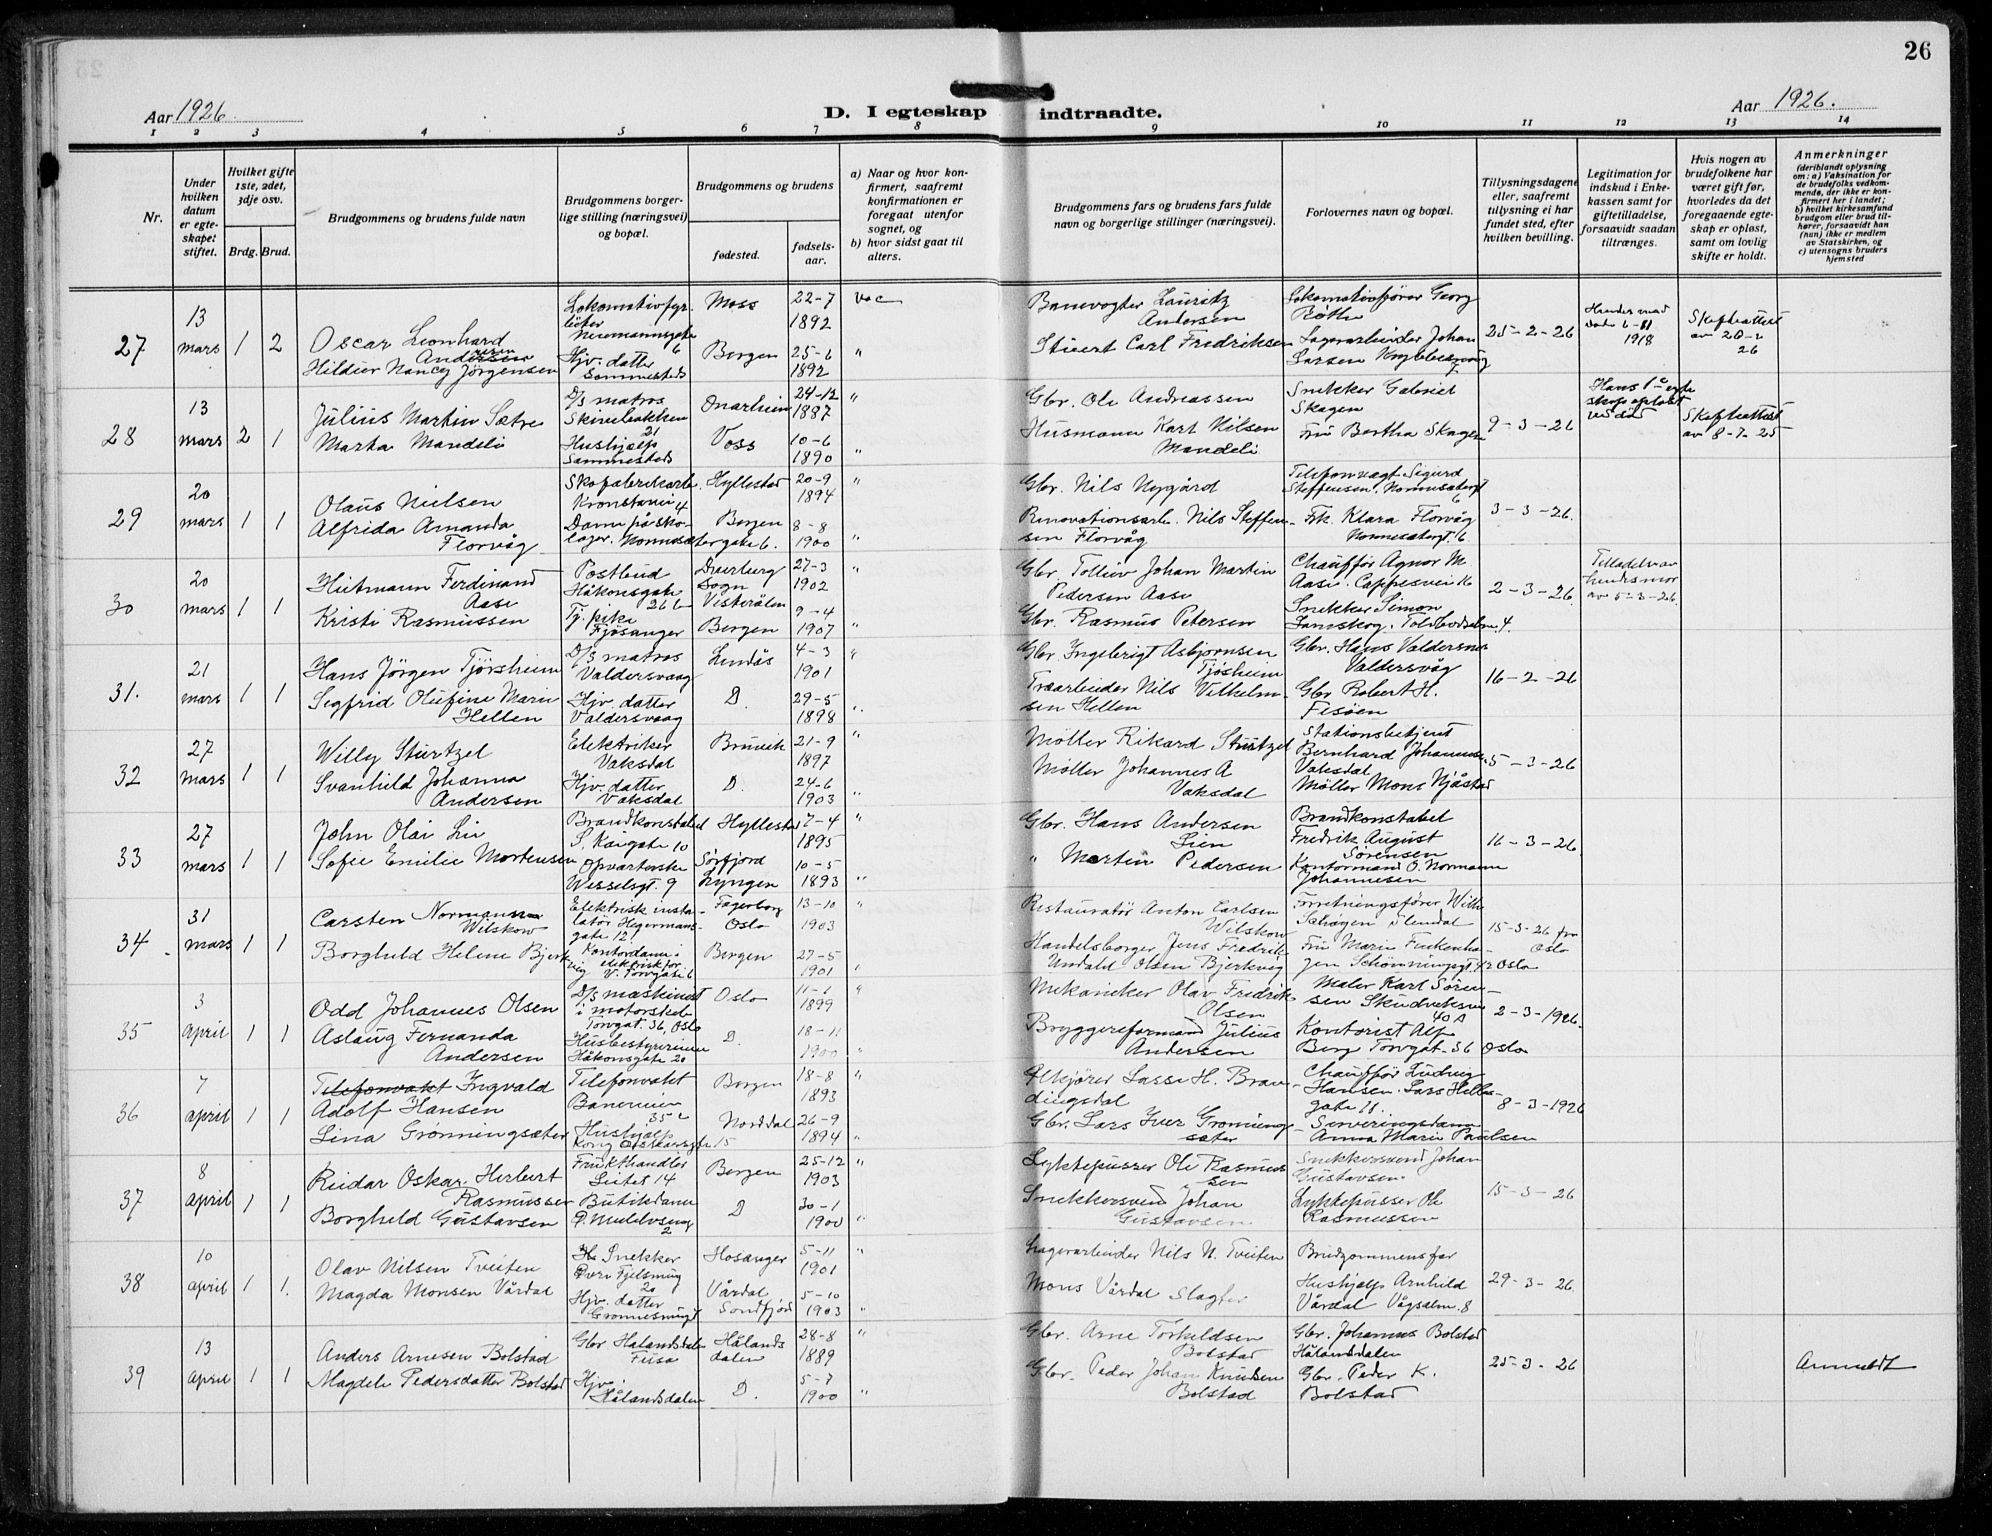 26
Aar 1926
D. I egteskap indtraadte.
Aar 1926.
1 2 3 4 5 6 7 8 9 10 11 12 13 14
Nr.
Under hvilken datum er egteskapet stiftet.
Hvilket gifte 1ste, 2det, 3dje osv.
Brdg. Brud.
Brudgommens og brudens fulde navn
Brudgommens borgerlige stilling (næringsvei) og bopæl.
Brudgommens og brudens
fødested.
fødselsaar.
a) Naar og hvor konfirmert, saafremt konfirmationen er foregaat utenfor sognet, og
b) hvor sidst gaat til alters.
Brudgommens fars og brudens fars fulde navn og borgerlige stillinger (næringsvei).
Forlovernes navn og bopæl.
Tillysningsdagene eller, saafremt tillysning ei har fundet sted, efter hvilken bevilling.
Legitimation for indskud i Enkekassen samt for giftetilladelse, forsaavidt saadan tiltrænges.
Hvis nogen av brudefolkene har været gift før, hvorledes da det foregaaende egteskap er opløst, samt om lovlig skifte er holdt.
Anmerkninger
(deriblandt oplysning om: a) Vaksination for de brudefolks vedkommende, der ikke er konfirmert her i landet; b) hvilket kirkesamfund brudgom eller brud tilhører, forsaavidt han (hun) ikke er medlem av Statskirken, og c) utensogns bruders hjemsted
27 13 mars 1 2
Oscar Leonhard
Andersen
Hildur Nancy Jörgensen
Lokomotivfyrböter
Neumannsgate 6
Hjv. datter
Sammesteds
Moss 22-7 1892 vac
Bergen 25-6 1892 "
Banevogter Lauritz
Andersen
Stuert Carl Fredriksen
Lokomotivförer Georg
Röthe
Lagerarbeider Johan
Larsen
25-2-26
1918
Skifteattest
av 20-2
26
28 13 mars 2 1
Julius Martin Sætre
Marta Mandeli
D/s matros
Skivebakken 21
Hushjelp
Sammesteds
Onarheim 24-12 1887 "
Voss 10-6 1890 "
Gbr. Ole Andreassen
Husmann Karl Nilsen
Mandeli
Snekker Gabriel
Skagen
Fru Bertha Skagen
9-3-26
Hans 1ste egteskap opløst
ved död
Skifteattest
av 8-7-25
29 20 mars 1 1
Olaus Nielsen
Alfrida Amanda
Florvåg
Skofabrikarb.
Kronstavei 4
Dame på skolager. Nonnesætergate 6.
Hyllestad 20-9 1894 "
Bergen 8-8 1900 "
Gbr. Nils Nygård
Renovationsarb. Nils Steffensen Florvåg
Telefonvagt Sigurd
Steffensen. Nonnesætergt 6
Frk. Klara Florvåg
Nonnesætergt. 6
3-3-26.
30 20 mars 1 1
Hutmann Ferdinand
Aase
Kristi Rasmussen
Postbud
Håkonsgate 26 b
Tj. pike
Fjösanger
Dverberg
Sogn
Vesterålen 27-3 1902 "
Bergen 9-4 1907 "
Gbr. Tollev Johan Martin
Pedersen Aase
Gbr. Rasmus Petersen
Chauffør Agnor M.
Aase. Cappesvei 16
Snekker Simon
Lamskog. Toldbodalm. 4.
2-3-26.
Tilladelse av
hendes mor
av 5-3-26.
31. 21 mars 1 1
Hans Jörgen Tjörsheim
Segfrid Olufine Marie
Hellen
D/s matros
Valdersvaag
Hjv. datter
Valdersvaag
Lindås 4-3 1901 "
D. 29-5 1898 "
Gbr. Ingebrigt Asbjørnsen
Tjøsheim
Træarbeider Nils Vilhelmsen Hellen
Gbr. Hans Valdersnes
Valdersvåg
Gbr Robert H.
Fesöen
16-2-26
32 27 mars 1 1
Willy Sturtzel
Svanhild Johanna
Andersen
Elektriker
Vaksdal
Hjv. datter
Vaksdal
Bruvik 21-9 1897 "
D. 24-6 1903 "
Möller Rikard Sturtzel
Möller Johannes A
Vaksdal
Stationsbetjent
Bernhard Johannesen
Vaksdal
Möller Mons Njåstad
5-3-26
33 27 mars 1 1
John Olai Lie
Sofie Emilie Mortensen
Brandkonstabel
S. Kaigate 10
Opvarterske
Wesselsgt. 9
Hyllestad 17-4 1895 "
Sörfjord
Lyngen 10-5 1893 "
Gbr. Hans Andersen
Lien
" Morten Pedersen
Brandkonstabel
Fredrik August
Sörensen
Kontormand O. Normann
Johannesen
16-3-26.
34. 31 mars 1 1
Carsten Normann
Wilskow
Borghild Helene Bjerkvig
Elektrisk installatör Hegermansgate 12.
Kontordame i
elektrisk for.
V. Torvgate 6
Fagerborg
Oslo 13-10 1903 "
Bergen 27-5 1901 "
Restauratör Anton Carlsen
Wilskow
Handelsborger Jens Fredrik
Undald Olsen Bjerkvig
Forretningsfører Wilh.
Schagen Stendal
Fru Marie Finkenhagen Schönningsgt. 42 Oslo
15-3-26 fra
Oslo
35 3 April 1 1
Odd Johannes Olsen
Aslaug Fernanda
Andersen
D/s maskinist
i motorskib
Torvgat. 36, Oslo
Husbestyrerinne
Håkonsgate 20
Oslo 11-1 1899 "
D. 18-11 1900 "
Mekaniker Olav Fredrik
Olsen
Bryggereformand Julius
Andersen
Maler Karl Sörensen Skudviksvei
40 A
Kontorist Alf
Berg Torvgat. 36 Oslo
2-3-1926.
36 7 april 1 1
Telefonvakt Ingvald
Adolf Hansen
Lina Grønningsæter
Telefonvakt
Baneveien
35 c
Hushjelp
Kong Oscarsgte 15
Bergen 18-8 1893 "
Norddal 26-9 1894 "
Lasse H. Brandingsdal
Gbr. Lars Iver Gronningsæter
Chauffør Ludvig
Hansen. Lars Hillesgate 11.
Serveringsdame
Anna Marie Paulsen
8-3-1926
37 8 april 1 1
Reidar Oskar Herbert
Rasmussen
Borghild Gustavsen
Frukthandler
Leitet 14
Butikdame
2
Bergen 25-12 1903 "
D 30-1 1900 "
Lyktepusser Ole Rasmussen
Snekkersvend Johan
Gustavsen
Snekkersvend Johan
Gustavsen.
Lyktepusser Ole
Rasmussen
15-3-26
38 10 april 1 1.
Olav Nilsen Tveiten
Magda Monsen Vårdal
Snekker
20
Hjv. datter
Hosanger 5-11 1901 "
Vårdal
Sondfjord 5-10 1903 "
Lagerarbeider Nils N. Tveiten
Mons Vårdal Slagter
Brudgommens far
Hushjelp Arnhild
Vårdal Vågsalm. 8
29-3-26.
39 13 april 1 1
Anders Arnesen Bolstad
Magdeli Pedersdatter Bolstad
Gbr Hålandsdalen
Fusa
Hjv.
Hålandsdalen
Hålandsdalen 28-8 1889 "
D. 5-7 1900 "
Gbr. Arne Torkeldsen
Bolstad
Gbr. Peder Johan Knudsen
Bolstad
Gbr. Johannes Bolstad
Hålandsdalen
Gbr. Peder K.
Bolstad
25-3-26
Anmeldt